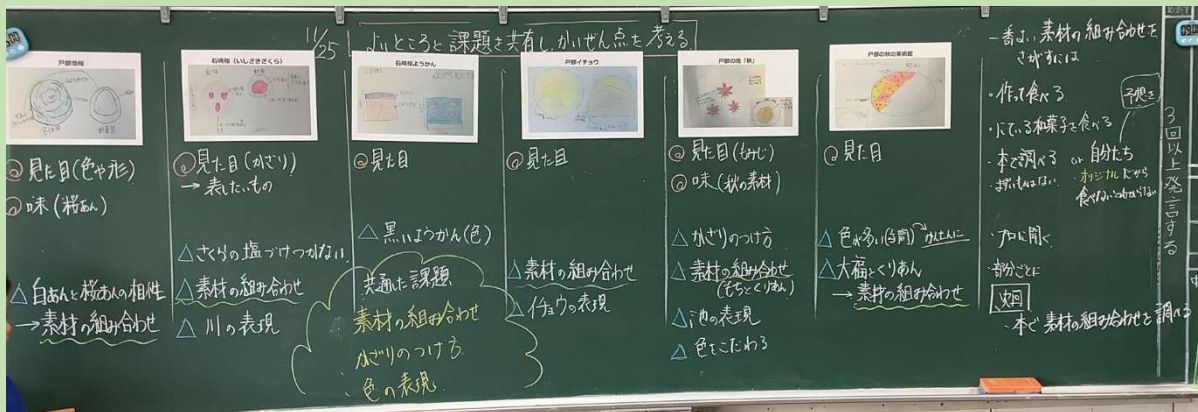 11/25
よいところと課題を共有し、かいぜん点を考える。
戸部池桜
◎見た目(色や形)
◎味(桜あん)
△白あんと桜あんの相性
→素材の組み合わせ
石崎桜(いしざきさくら)
◎見た目(かざり)
→表したいもの
△さくらの塩づけつかない
△素材の組み合わせ
△川の表現
石崎桜ようかん
◎見た目
△黒いようかん(色)
共通した課題
・素材の組み合わせ
・かざりのつけ方
・色の表現
戸部イチョウ
◎見た目
△素材の組み合わせ
△イチョウの表現
戸部の池「秋」
◎見た目(もみじ)
◎味(秋の素材)
△かざりのつけ方
△素材の組み合わせ
(もちとくりあん)
△池の表現
△色をこだわる
戸部の秋の美術館
◎見た目
△色が多い(手間)→かんたんに
△大福とくりあん
→素材の組み合わせ
一番よい素材の組み合わせを
さがすには
・作って食べる
・にている和菓子を食べる
・本で調べる or 自分たち
予想を
・オリジナルだから
食べないとわからない
・プロに聞く
・部分ごとに
次回
・本で素材の組み合わせを調べる
3回以上発言する